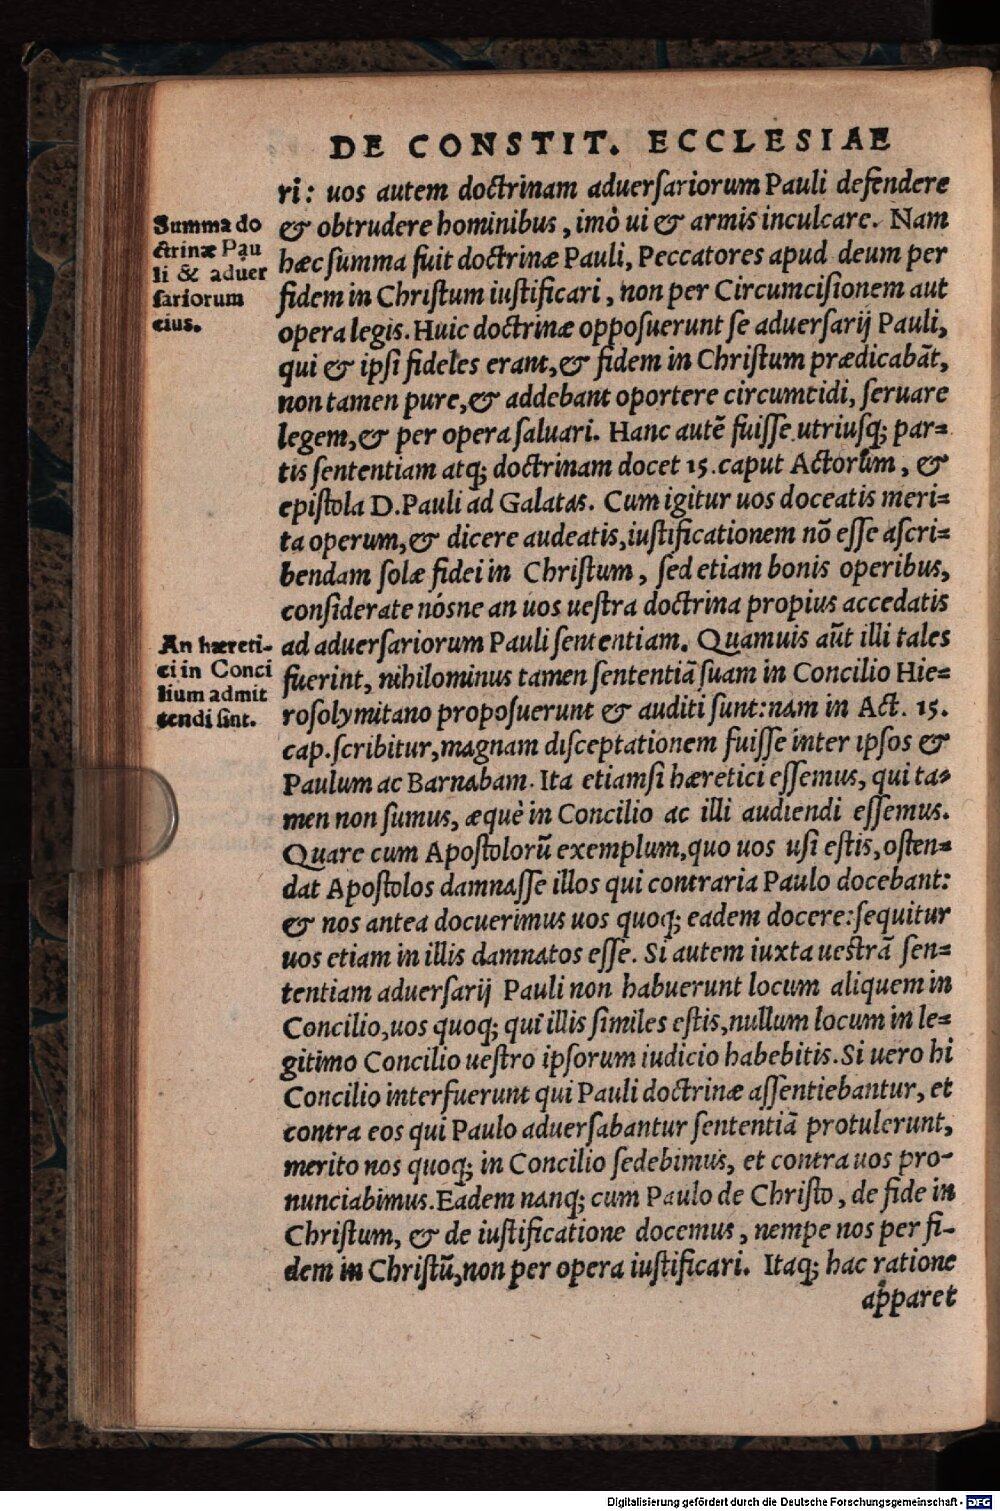 DE CONSTIT. ECCLESIAE
ri: uos autem doctrinam aduerſariorum Pauli defendere
& obtrudere hominibus, imò ui & armis inculcare. Nam
hæc ſumma fuit doctrinæ Pauli, Peccatores apud deum per
fidem in Chriſtum iuſtificari, non per Circumciſionem aut
opera legis. Huic doctrinæ oppoſuerunt ſe aduerſarij Pauli,
qui & ipſi fideles erant, & fidem in Chriſtum prædicabāt,
non tamen pure, & addebant oportere circumcidi, ſeruare
legem, & per opera ſaluari. Hanc autē fuiſſe utriuſq; par=
tis ſententiam atq; doctrinam docet 15. caput Actorum, &
epiſtola D. Pauli ad Galatas. Cum igitur uos doceatis meri=
ta operum, & dicere audeatis, iuſtificationem nō eſſe aſcri=
bendam ſolæ fidei in Chriſtum, ſed etiam bonis operibus,
conſiderate nósne an uos ueſtra doctrina propius accedatis
ad aduerſariorum Pauli ſententiam. Quamuis aūt illi tales
fuerint, nihilominus tamen ſententiā ſuam in Concilio Hie=
roſolymitano propoſuerunt & auditi ſunt: nam in Act. 15.
cap. ſcribitur, magnam diſceptationem fuiſſe inter ipſos &
Paulum ac Barnabam. Ita etiamſi hæretici eſſemus, qui ta=
men non ſumus, æquè in Concilio ac illi audiendi eſſemus.
Quare cum Apoſtolorū exemplum, quo uos uſi eſtis, oſten=
dat Apoſtolos damnaſſe illos qui contraria Paulo docebant:
& nos antea docuerimus uos quoq; eadem docere: ſequitur
uos etiam in illis damnatos eſſe. Si autem iuxta ueſtrā ſen=
tentiam aduerſarij Pauli non habuerunt locum aliquem in
Concilio, uos quoq; qui illis ſimiles eſtis, nullum locum in le=
gitimo Concilio ueſtro ipſorum iudicio habebitis. Si uero hi
Concilio interfuerunt qui Pauli doctrinæ aſſentiebantur, et
contra eos qui Paulo aduerſabantur ſententiā protulerunt,
merito nos quoq; in Concilio ſedebimus, et contra uos pro-
nunciabimus. Eadem nanq; cum Paulo de Chriſto, de fide in
Chriſtum, & de iuſtificatione docemus, nempe nos per fi-
dem in Chriſtū, non per opera iuſtificari. Itaq; hac ratione
apparet
Summa do
ctrinæ Pau
li & aduer
ſariorum
eius.
An hæreti-
ci in Conci
lium admit
tendi ſint.
Digitalisierung gefördert durch die Deutsche Forschungsgemeinschaft - DFG